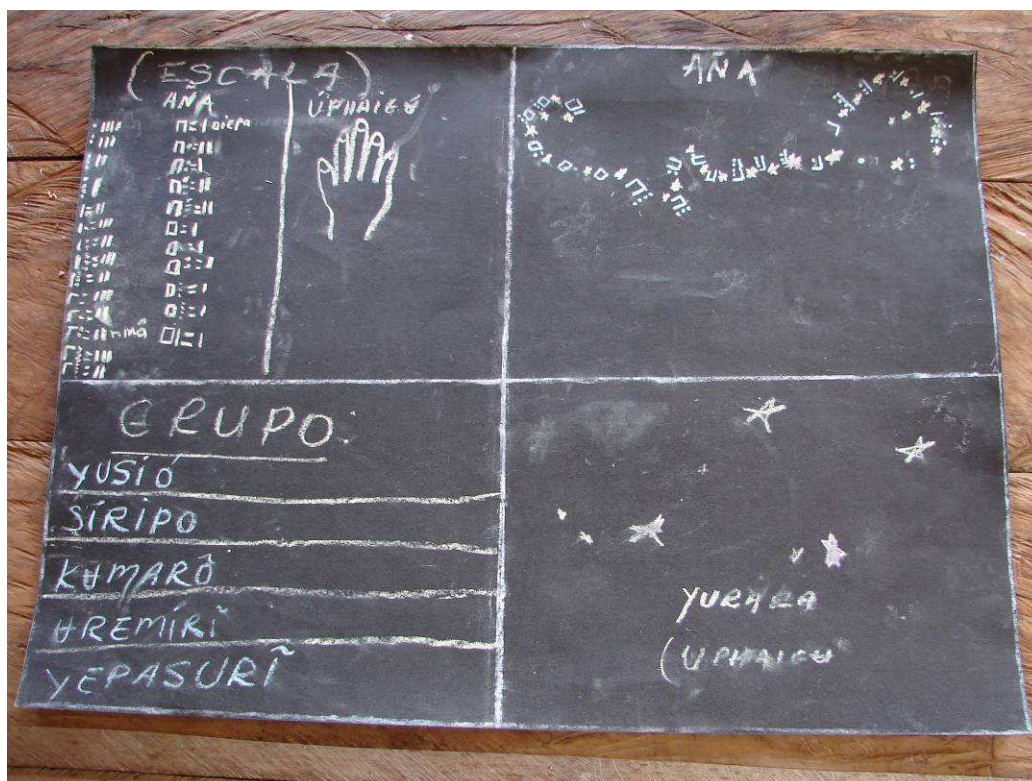 (ESCALA)
AÑA
ÚPHAIGɄ
AÑA
GRUPO
YUSIÓ
SÍRIPO
KɄMARÕ
ɄREMÍRĨ
YEPASURĨ
YURARA
(UPHAIGɄ